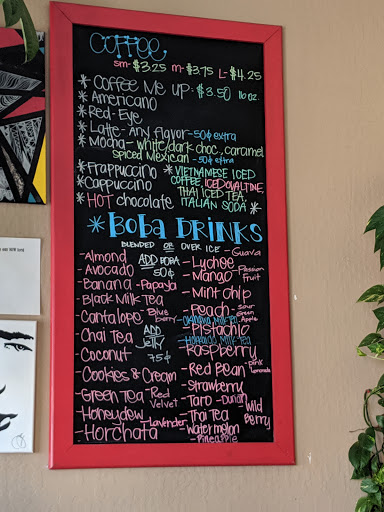 COFFEE
sm-$3.25 m-$3.75 L-$4.25
*Coffee Me up: $3.50 16 oz.
*Americano
*Red-Eye
*Latte-Any flavor-50¢ extra
*Mocha-white/dark choc., caramel
spiced Mexican -50¢ extra
*Frappuccino *VIETNAMESE ICED
*Cappuccino COFFEE, ICED OVALTINE,
*HOT chocolate THAI ICED TEA,
ITALIAN SODA *
*BOBA DRINKS
BLENDED OR OVER ICE
-Guava
-Almond ADD BOBA -Lychee
-Avocado 50¢ -Mango -Passion Fruit
-Banana -Papaya -Mint chip
-Black Milk Tea -Peach -Sour Green Apple
-Cantalope -Blueberry -Okinawa Milk Tea
-Chai Tea ADD Jelly 75¢ -Pistachio
-Hokkaido Milk Tea
-Coconut -Raspberry
-Cookies & Cream -Red Bean -Pink Lemonade
-Strawberry
-Green Tea -Red Velvet -Taro -Durian
-Honeydew -Lavender -Thai Tea -Wild Berry
-Horchata -Watermelon
-Pineapple